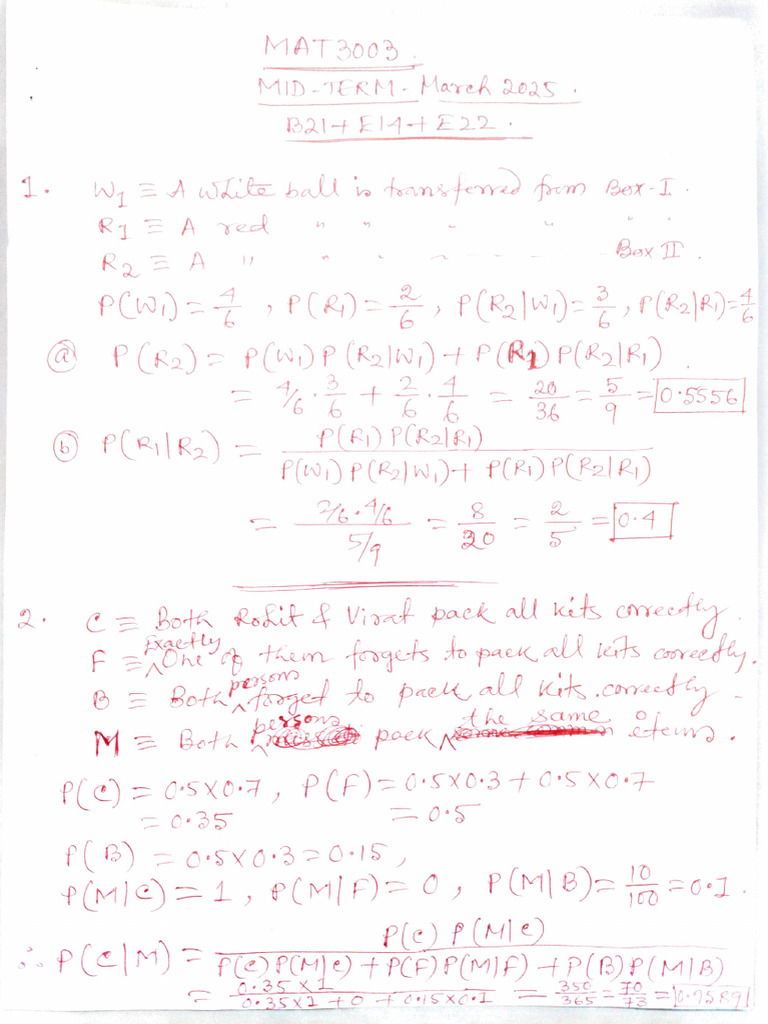 MAT3003.
MID-TERM - March 2025.
B21+E14+E22.
1. W₁ ≡ A white ball is transferred from Box-I.
R₁ ≡ A red " " " " " "
R₂ ≡ A " " " " " Box II.
P(W₁) = 4/6, P(R₁) = 2/6, P(R₂|W₁) = 3/6, P(R₂|R₁) = 4/6
(a) P(R₂) = P(W₁) P(R₂|W₁) + P(R₁) P(R₂|R₁).
= 4/6 · 3/6 + 2/6 · 4/6 = 20/36 = 5/9 = 0.5556
(b) P(R₁|R₂) = P(R₁) P(R₂|R₁) / P(W₁) P(R₂|W₁) + P(R₁) P(R₂|R₁)
= 2/6 · 4/6 / 5/9 = 8/20 = 2/5 = 0.4
2. C ≡ Both Rohit & Virat pack all kits correctly.
F ≡ Exactly One of them forgets to pack all kits correctly.
B ≡ Both persons forget to pack all kits correctly.
M ≡ Both persons pack the same items.
P(C) = 0.5×0.7, P(F) = 0.5×0.3 + 0.5×0.7
= 0.35 = 0.5
P(B) = 0.5×0.3 = 0.15,
P(M|C) = 1, P(M|F) = 0, P(M|B) = 10/100 = 0.1.
∴ P(C|M) = P(C) P(M|C) / P(C) P(M|C) + P(F) P(M|F) + P(B) P(M|B)
= 0.35×1 / 0.35×1 + 0 + 0.15×0.1 = 350/365 = 70/73 = 0.9589